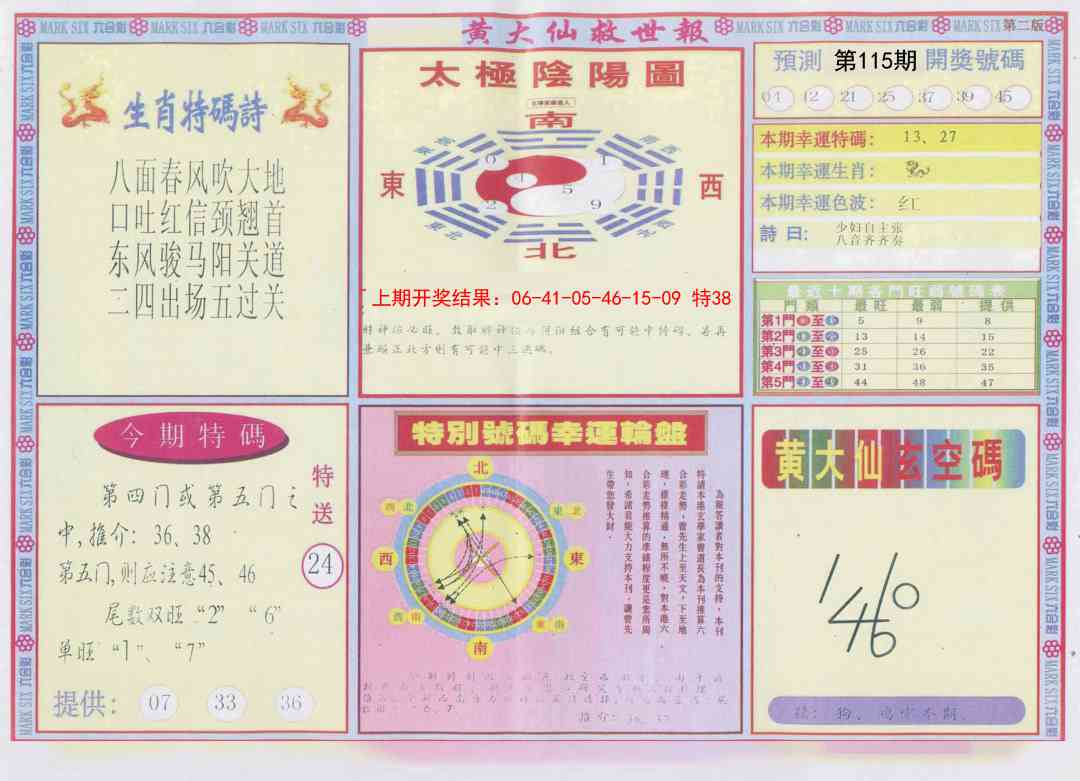 MARK SIX 六合彩 MARK SIX 六合彩 MARK SIX 六合彩 MARK SIX 六合彩
黄大仙救世報
MARK SIX 六合彩 MARK SIX 六合彩 MARK SIX
第二版
生肖特碼詩
八面春风吹大地
口吐红信颈翘首
东风骏马阳关道
二四出场五过关
太極陰陽圖
南
東南
西南
東
西
0
1
4
5
2
9
東北
西北
北
上期开奖结果：06-41-05-46-15-09 特38
兼顾正北方则有可能中三类码。
預測 第115期 開獎號碼
04 12 21 25 37 39 45
本期幸運特碼： 13、27
本期幸運生肖：
本期幸運色波： 红
詩曰： 少妇自主张
八音齐齐奏
最近十期各門旺弱號碼表
門類 最旺 最弱 提供
第1門 至 5 9 8
第2門 至 13 14 15
第3門 至 25 26 22
第4門 至 31 36 35
第5門 至 44 48 47
今期特碼
特送
24
第四门或第五门之
中,推介: 36、38
第五门,则应注意45、46
尾数双旺“2” “6”
单旺“1”、“7”
提供： 07 33 36
特別號碼幸運輪盤
北
西北
東北
西
東
西南
東南
南
為報答讀者對本刊的支持，本刊
特請本港玄學家曾道長為本刊推算六
合彩走勢，曾先生上至天文，下至地
理，樣樣精通，無所不曉，對本港六
合彩走勢推算的準確程度更是衆所周
知，希諸君能大力支持本刊，讓曾先
生帶您發大財。
黄大仙玄空碼
1
4
6
0
6